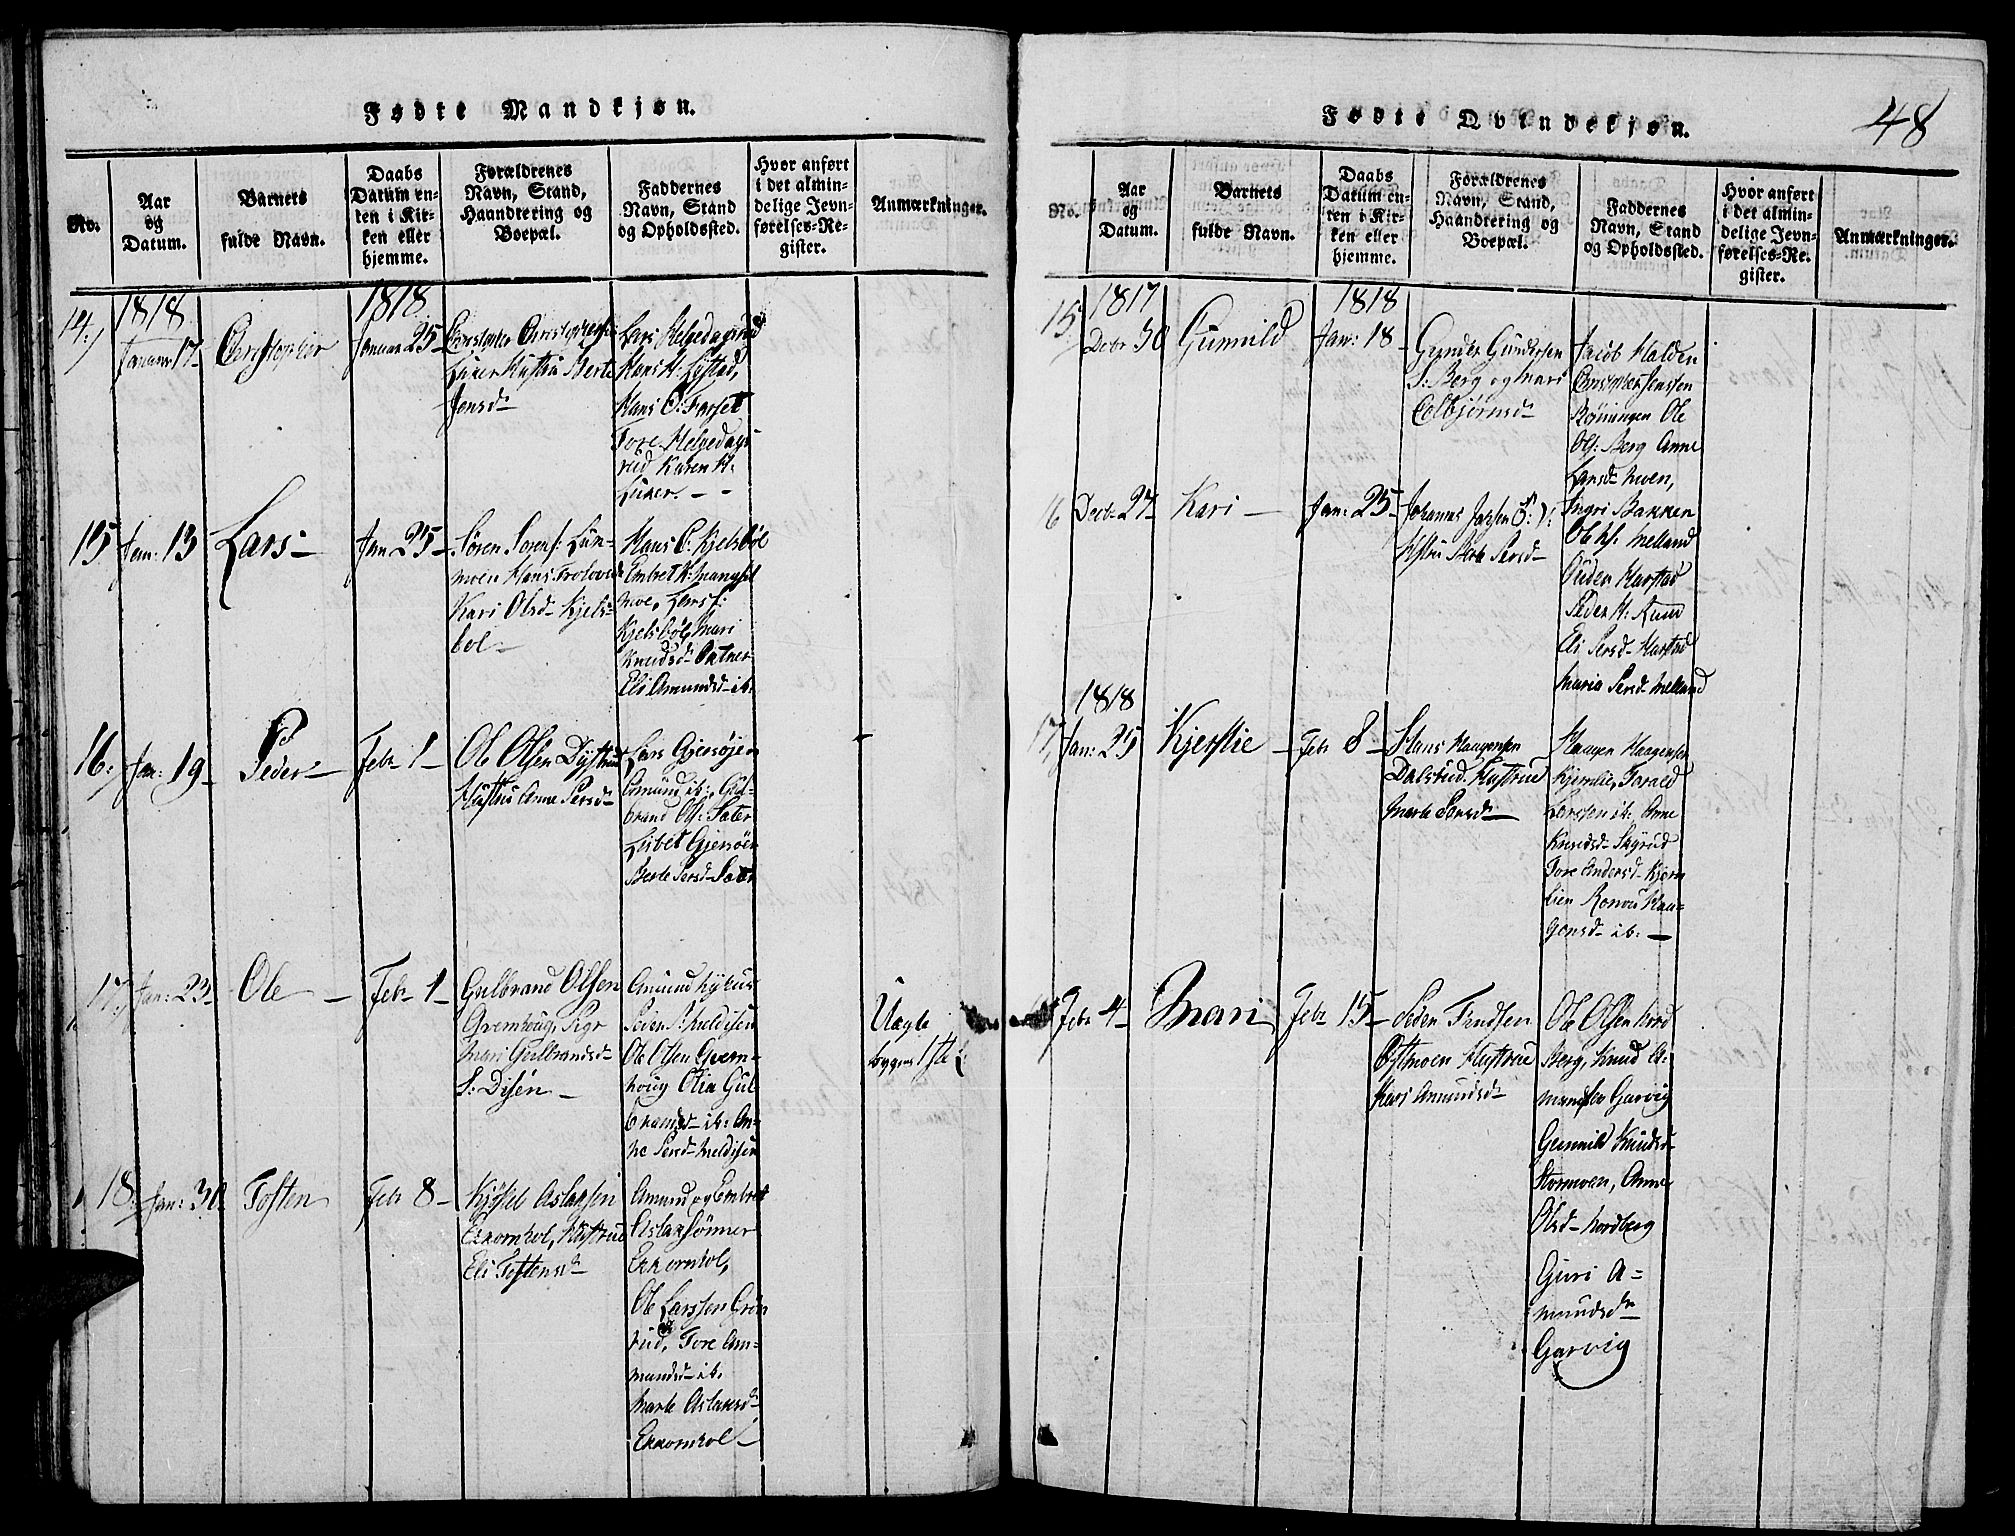 Fødte Mandkjøn.
No.
Aar
og
Datum.
Barnets
fulde Navn.
Daabs
Datum en-
ten i Kir-
ken eller
hjemme.
Forældrenes
Navn, Stand,
Haandtering og
Boepæl.
Faddernes
Navn, Stand
og Opholdssted.
Hvor anført
i det almin-
delige Jevn-
førelses-Re-
gister.
Anmærkninger.
14.)
1818
Januar 17.
Christopher
1818
Januar 25
Christopher Christophersen
Hustru Berte
Jensd
Lars Helgedagsrud
Hans H.
Hans O: Farset
Tore Helgedags
rud Karen H.
15.
Jan: 13
Lars
Jan 25
Søren Sørens:
moen
Kari Olsd Kjels-
bøl
Hans C. Kjelsbøl
Embret H:
moe, Lars
Kjelsbøl, Mari
Knudsd
Eli Amundsd ib:
16.
Jan: 19
Peder
Febr 1
Ole Olsen Dystrud
Hustru Anne Persd
Lars Gjersøjen
Omund ib:, Gul-
brand Ols: Sæter
Lisbet Gjersøen
Berte Persd Sæter
17.
Jan: 23
Ole
Febr 1
Gulbrand Olsen
Qvernhoug, Pige
Mari Gulbrandsd
S: Disen
Amund
Ole Olsen Qvern-
houg Olia Gul
brandsd ib: An-
ne Persd
Uægte
18.
Jan: 30
Tosten
Febr 8
Kjøstel Aslaksen
Ekornhol, Hustrue
Eli Tostensd
Amund og Embret
Aslaksønner
Ekornhol,
Ole Larssen Grøn
rud, Tore Am-
mundsd ib.
Marte Aslaksd
Ekkornhol
Fødte Qvindekjøn.
48
No.
Aar
og
Datum.
Barnets
fulde Navn.
Daabs
Datum en-
ten i Kir-
ken eller
hjemme.
Forældrenes
Navn, Stand,
Haandtering og
Boepæl.
Faddernes
Navn, Stand
og Opholdssted.
Hvor anført
i det almin-
delige Jevn-
førelses-Re-
gister.
Anmærkninger.
15.
1817
Decbr 30
Gunnild
1818
Jan: 18
Gunder Gundersen
S: Berg og Mari
Colbjørnsd
Jacob Halden
Christopher Jenssen
Røningen Ole
Ols: Berg Anne
Larsd Moen,
Ingri Bakken
16
Decbr 27
Kari
Jan: 25
Johannes
Hstru Berte Persd
Ole Hs: Melland
Ouden Harstad
Peder H:
Eli Persd Harstad
Maria Persd Melland
17.
1818
Jan: 25
Kjerstie
Febr 8
Hans Haagensen
Dalstud. Hustrue
Marte Larsd
Haagen Haagensen
Kjernlie, Torald
Larssen ib, Anne
Knudsd Skyrud
Tore Andersd Kjern
lien Ronou Haa-
gensd ib:
Febr 4
Mari
Febr 15
Peder Trudsen
Østmoen Hustrue
Kari Amundsd
Ole Olsen Nord
Berg, Knud A-
mundsen Garvig
Gunnild Knudsd
Stormoen, Anne
Olsd Nordberg
Guri A-
mundsdr
Garvig